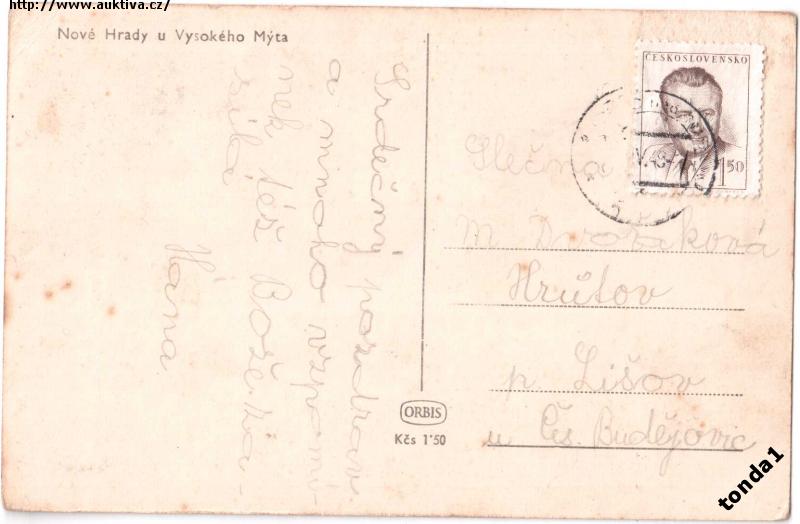 http://www.auktiva.cz/
Nové Hrady u Vysokého Mýta
Srdečný pozdrav
a mnoho vzpomí-
nek též Boženka
Hána
ČESKOSLOVENSKO
1 50
Slečna
M Dvořáková
Hrůtov
p. Lišov
u Čes. Budějovic
ORBIS
Kčs 1'50
tonda1